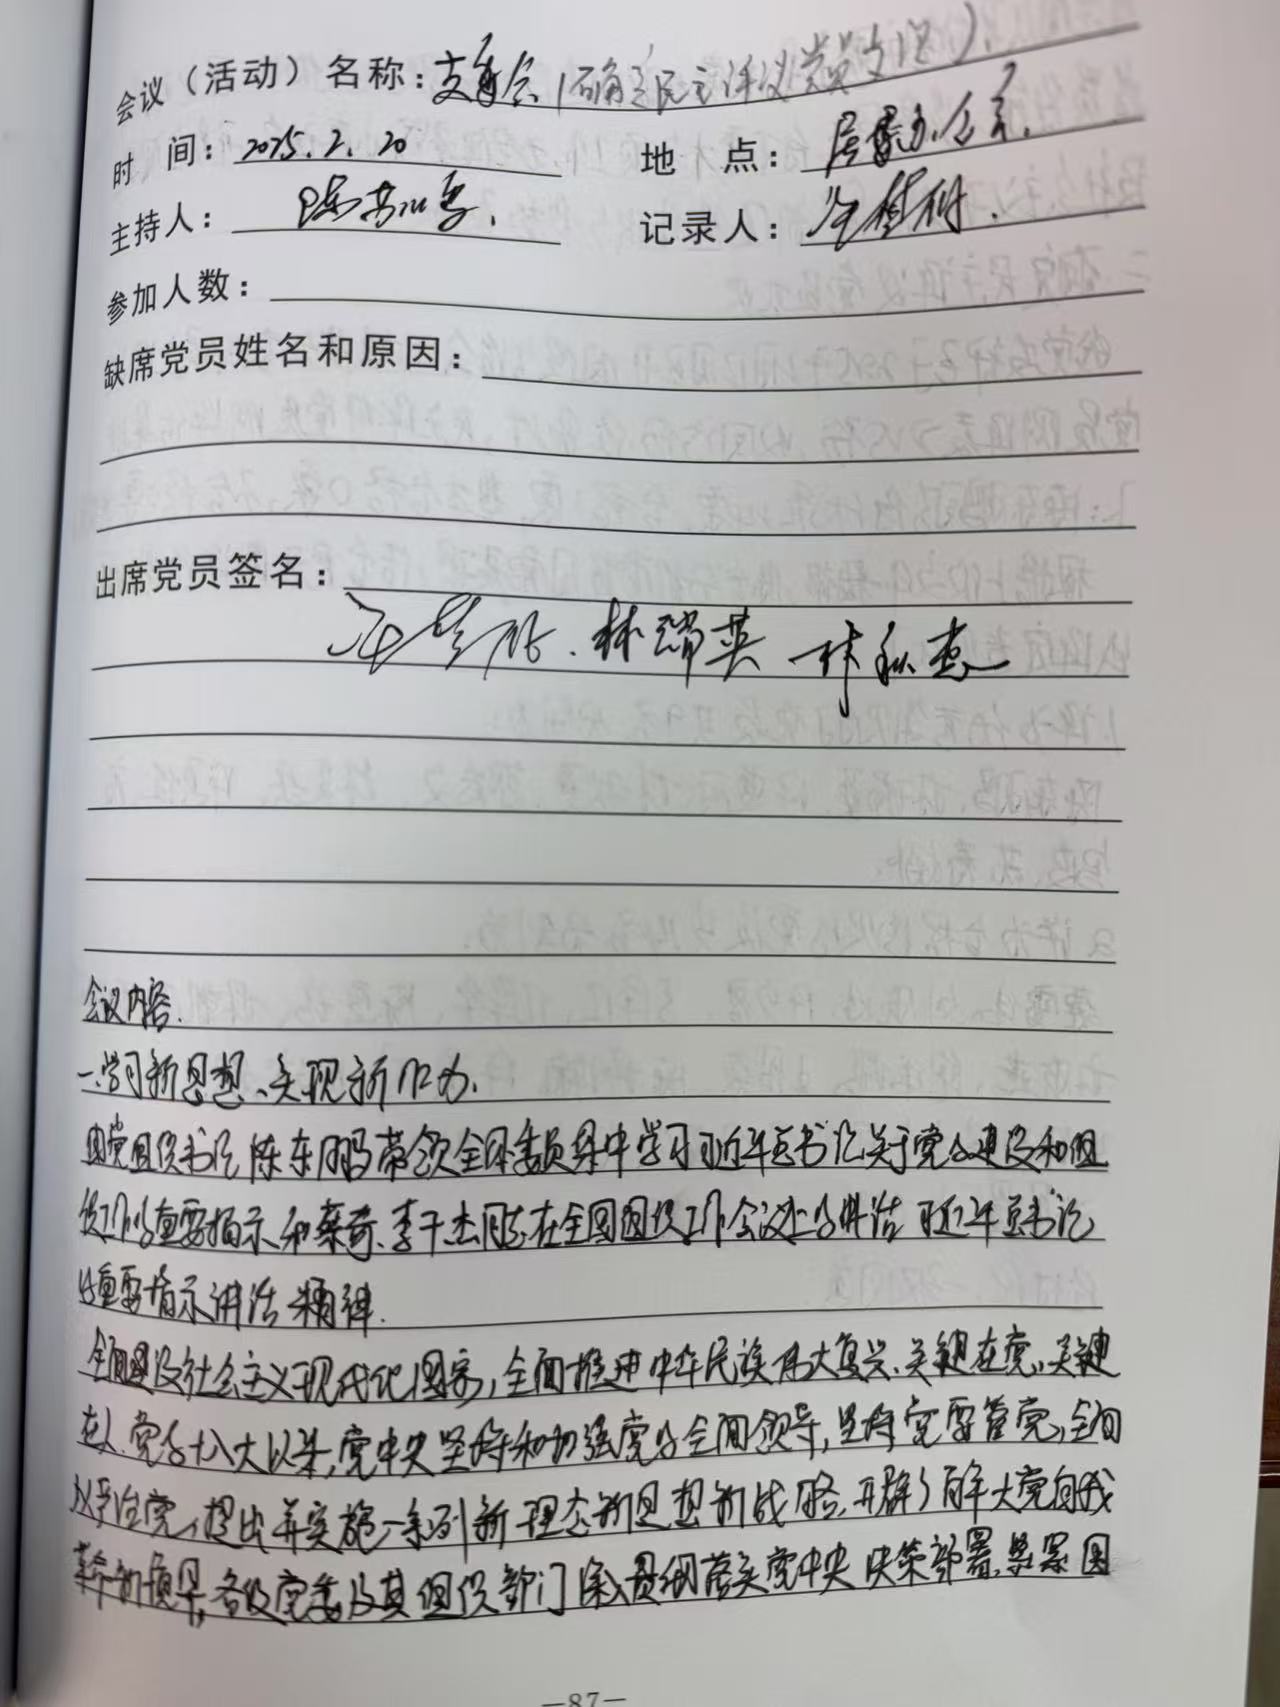 会议（活动）名称：支委会（确定民主评议党员文况）.
时 间：2025.2.20 地 点：居委办公室.
主持人： 记录人：
参加人数：
缺席党员姓名和原因：
出席党员签名：
林瑞英
会议内容.
一.学习新思想、实现新作为.
由党组织书记陈东鹏带领全体委员集中学习习近平总书记关于党的建设和组
织工作的重要指示和蔡奇、李干杰同志在全国组织工作会议上的讲话 习近平总书记
的重要指示讲话精神.
全面建设社会主义现代化国家，全面推进中华民族伟大复兴.关键在党.关键
在人.党的十八大以来，党中央坚持和加强党的全面领导，坚持党要管党，全面
从严治党，提出并实施一系列新理念新思想新战略.开辟了百年大党自我
革命新境界，各级党委及其组织部门深入贯彻落实党中央决策部署.紧紧围
—87—